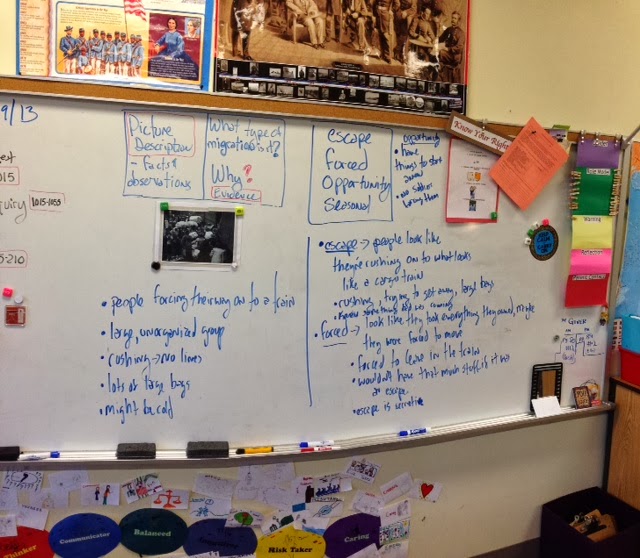 9/13
Picture
Description
- facts &
observations
What type of
migration is it?
Why?
Evidence
escape
Forced
Opportunity
Seasonal
opportunity
• home
things to start
Know Your Right
1015
1015-1055
• escape → people look like
they're rushing on to what looks
like a cargo train
• rushing, trying to get away, large bags
• forced → look like they took everything they owned, maybe
they were forced to move
• forced to leave in the train
• wouldn't have that much stuff if it was
an escape
• escape is
• people forcing their way on to a train
• large, unorganized group
• rushing → no lines
• lots of large bags
• might be cold
Thinker
Communicator
Balanced
Risk Taker
Caring